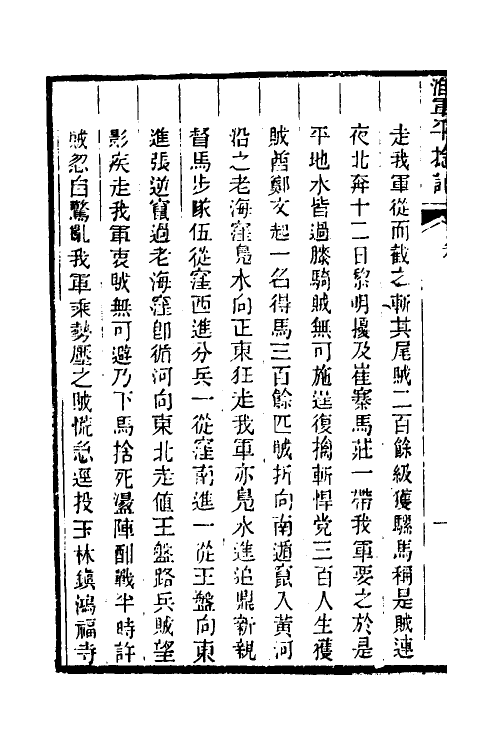 淮軍平捻記
走我軍從而截之斬其尾賊二百餘級獲騾馬稱是賊連
夜北奔十二日黎明擾及崔寨馬莊一帶我軍要之於是
平地水皆過膝騎賊無可施逞復擒斬悍党三百人生獲
賊酋鄭文起一名得馬三百餘匹賊折向南遁竄入黄河
沿之老海窪鳧水向正東狂走我軍亦鳧水進追鼎新親
督馬步隊伍從窪西進分兵一從窪南進一從王盤向東
進張逆竄過老海窪卽循河向東北走値王盤路兵賊望
影疾走我軍衷賊無可避乃下馬捨死盪陣酣戰半時許
賊忽自驚亂我軍乘勢壓之賊慌急逕投玉林鎭鴻福寺